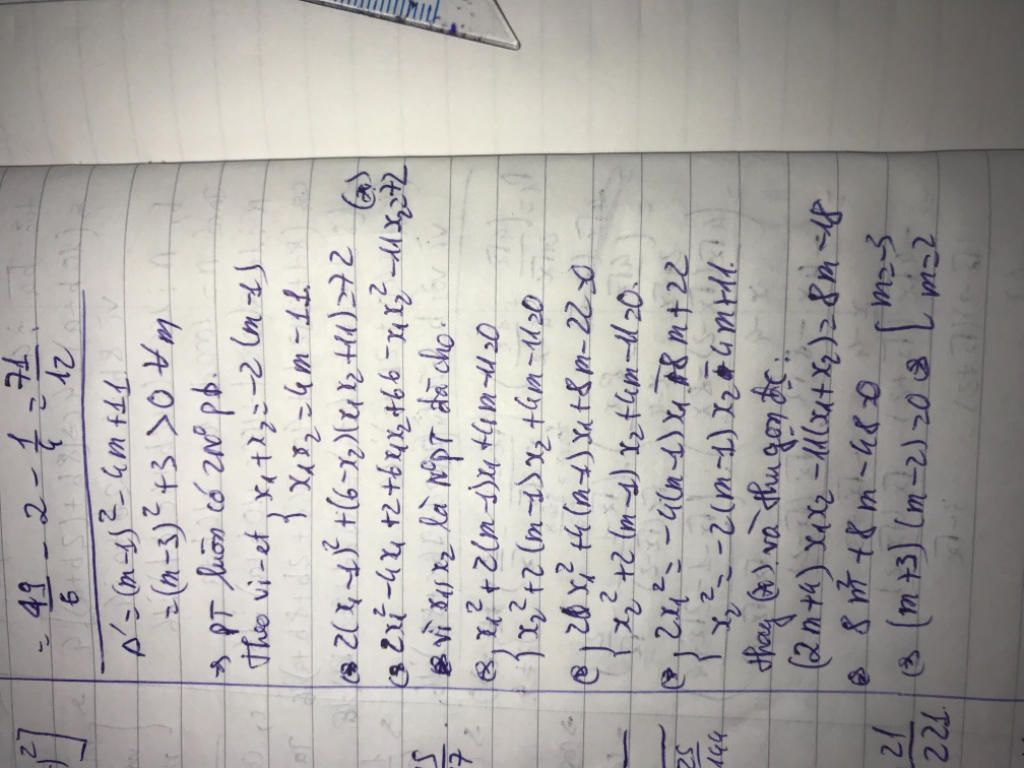 = 49/6 - 2 - 1/4 = 71/12.
Δ' = (m-1)² - 4m + 11
= (m-3)² + 3 > 0 ∀ m
→ PT luôn có 2 No pb.
Theo vi-et { x₁ + x₂ = -2(m-1)
x₁x₂ = 4m - 11.
⇔ 2(x₁-1)² + (6-x₂)(x₁x₂+11) = 72 (*)
⇔ 2x₁² - 4x₁ + 2 + 6x₁x₂ + 66 - x₁x₂² - 11x₂ = 72
vì x₁, x₂ là No PT đã cho.
⇔ { x₁² + 2(m-1)x₁ + 4m - 11 = 0
x₂² + 2(m-1)x₂ + 4m - 11 = 0
⇔ { 2x₁² + 4(m-1)x₁ + 8m - 22 = 0
x₂² + 2(m-1)x₂ + 4m - 11 = 0.
⇔ { 2x₁² = -4(m-1)x₁ - 8m + 22
x₂² = -2(m-1)x₂ - 4m + 11.
thay (*) và thu gọn đc:
(2m+4)x₁x₂ - 11(x₁+x₂) = 8m - 18
⇔ 8m² + 8m - 48 = 0
⇔ (m+3)(m-2) = 0 ⇔ [ m = -3
m = 2
²)]
25
17
25
144
21
221